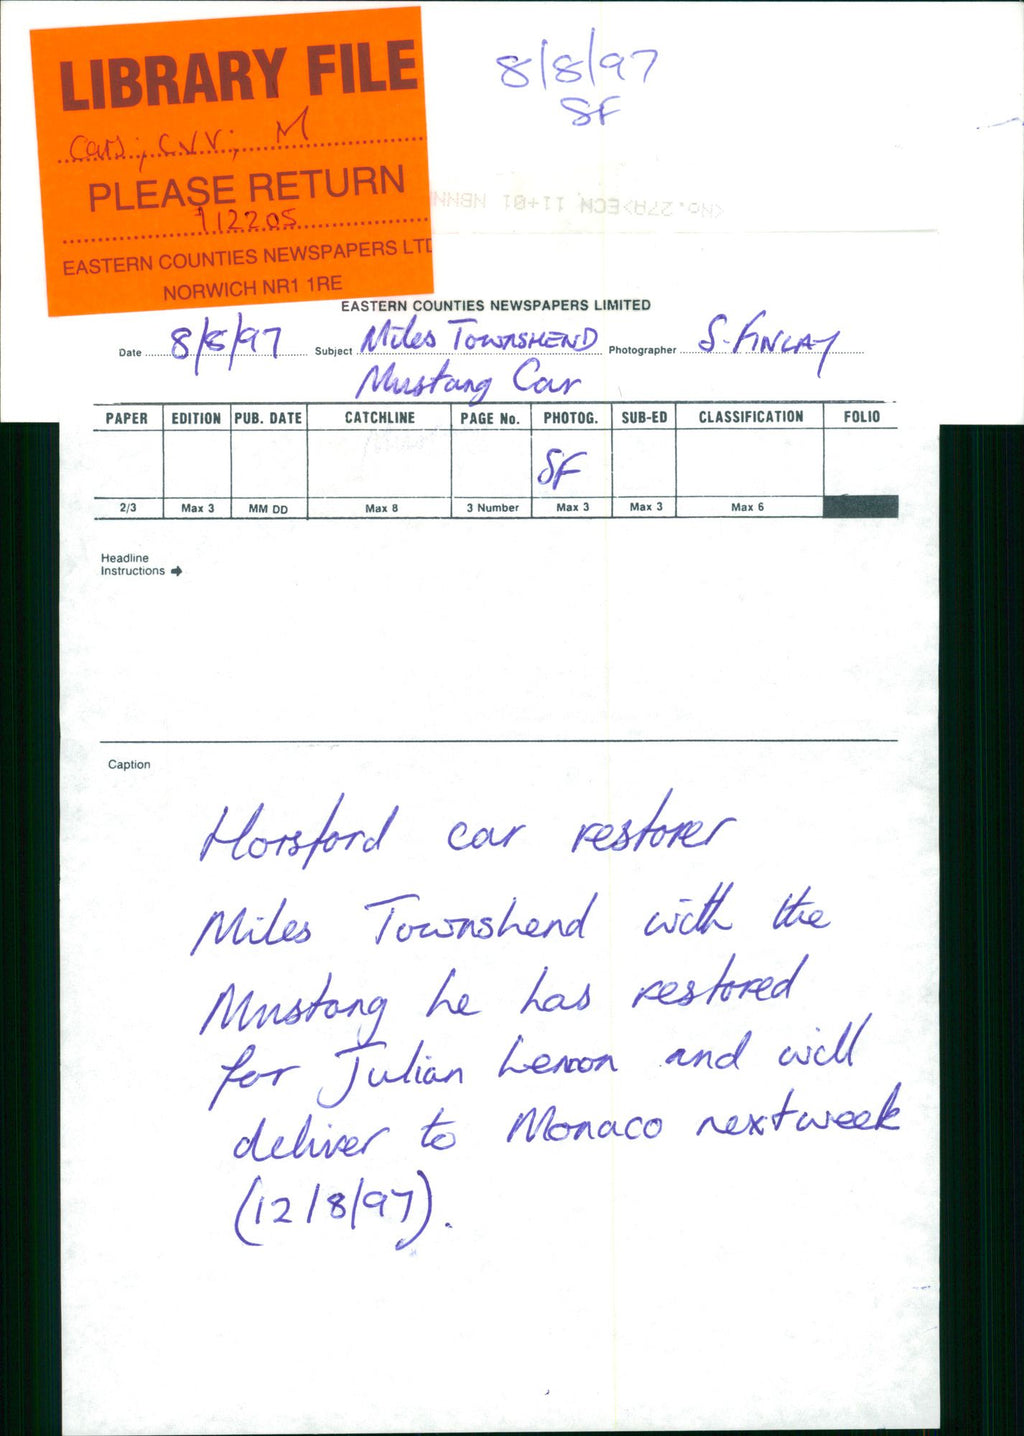 LIBRARY FILE
Cars; C.V.V; M
PLEASE RETURN
112205
EASTERN COUNTIES NEWSPAPERS LTD
NORWICH NR1 1RE
8/8/97
SF
<No.27A>ECN 11+01 NBNN
EASTERN COUNTIES NEWSPAPERS LIMITED
Date 8/8/97 Subject Miles TOWNSHEND Photographer S. FINLAY
Mustang Car
PAPER EDITION PUB. DATE CATCHLINE PAGE No. PHOTOG. SUB-ED CLASSIFICATION FOLIO
SF
2/3 Max 3 MM DD Max 8 3 Number Max 3 Max 3 Max 6
Headline
Instructions
Caption
Horsford car restorer
Miles Townshend with the
Mustang he has restored
for Julian Lennon and will
deliver to Monaco next week
(12/8/97).